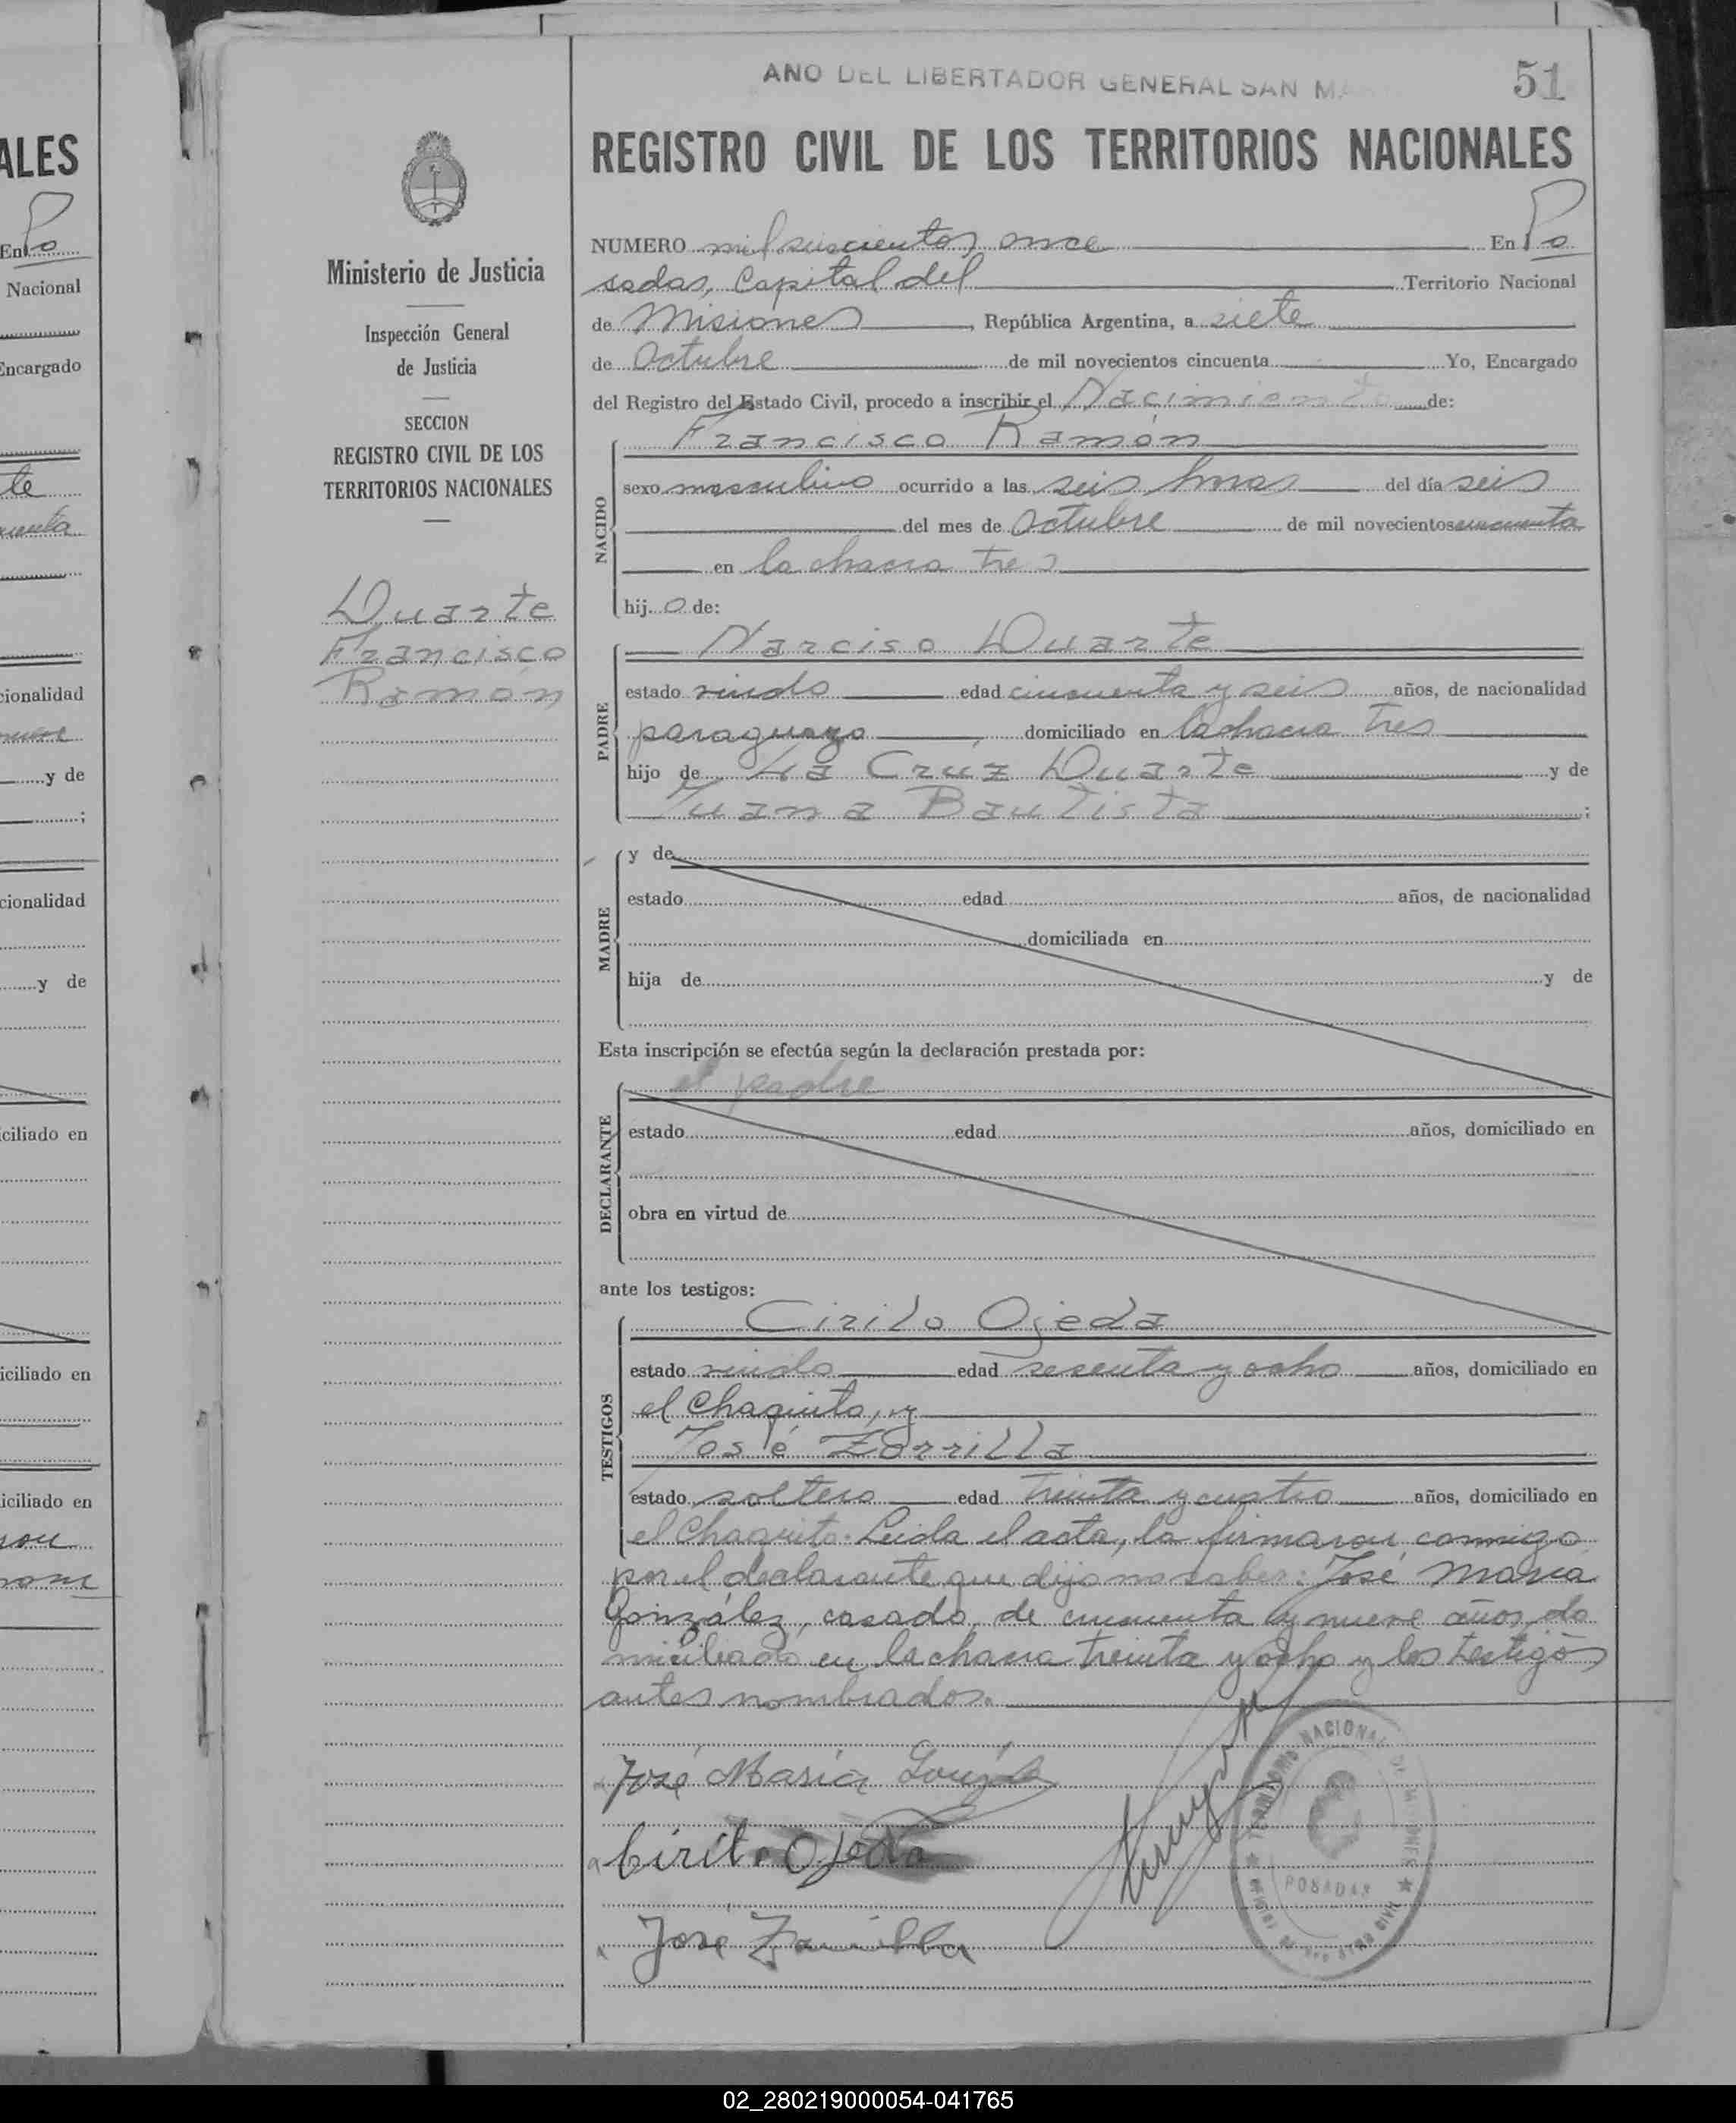 ALES
En Po
Nacional
Encargado
te
cuenta
cionalidad
y de
;
cionalidad
y de
ciliado en
iciliado en
iciliado en
Ministerio de Justicia
Inspección General
de Justicia
SECCION
REGISTRO CIVIL DE LOS
TERRITORIOS NACIONALES
Duarte
Francisco
Ramón
AÑO DEL LIBERTADOR GENERAL SAN MA
51
REGISTRO CIVIL DE LOS TERRITORIOS NACIONALES
NUMERO mil seiscientos once En Po
sadas, Capital del Territorio Nacional
de Misiones, República Argentina, a siete
de Octubre de mil novecientos cincuenta Yo, Encargado
del Registro del Estado Civil, procedo a inscribir el Nacimiento de:
NACIDO
Francisco Ramón
sexo masculino ocurrido a las seis horas del día seis
del mes de Octubre de mil novecientos cincuenta
en la chacra tres
hij o de:
PADRE
Narciso Duarte
estado viudo edad cincuenta y seis años, de nacionalidad
paraguayo, domiciliado en la chacra tres
hijo de La Cruz Duarte y de
Juana Bautista ;
MADRE
y de
estado edad años, de nacionalidad
domiciliada en
hija de y de
Esta inscripción se efectúa según la declaración prestada por:
DECLARANTE
el padre
estado edad años, domiciliado en
obra en virtud de
ante los testigos:
TESTIGOS
Cirilo Ojeda
estado viudo edad sesenta y ocho años, domiciliado en
el Chaquito, y
José Zorrilla
estado soltero edad treinta y cuatro años, domiciliado en
el Chaquito. Leida el acta, la firmaron conmigo
por el declarante que dijo no saber: José María
González, casado, de cincuenta y nueve años, do
miciliado en la chacra treinta y ocho y los testigos
antes nombrados.
José María Gonzále
Cirilo Ojeda
José Zorrilla
TERRITORIO NACIONAL DE MISIONES
POSADAS
02_280219000054-041765